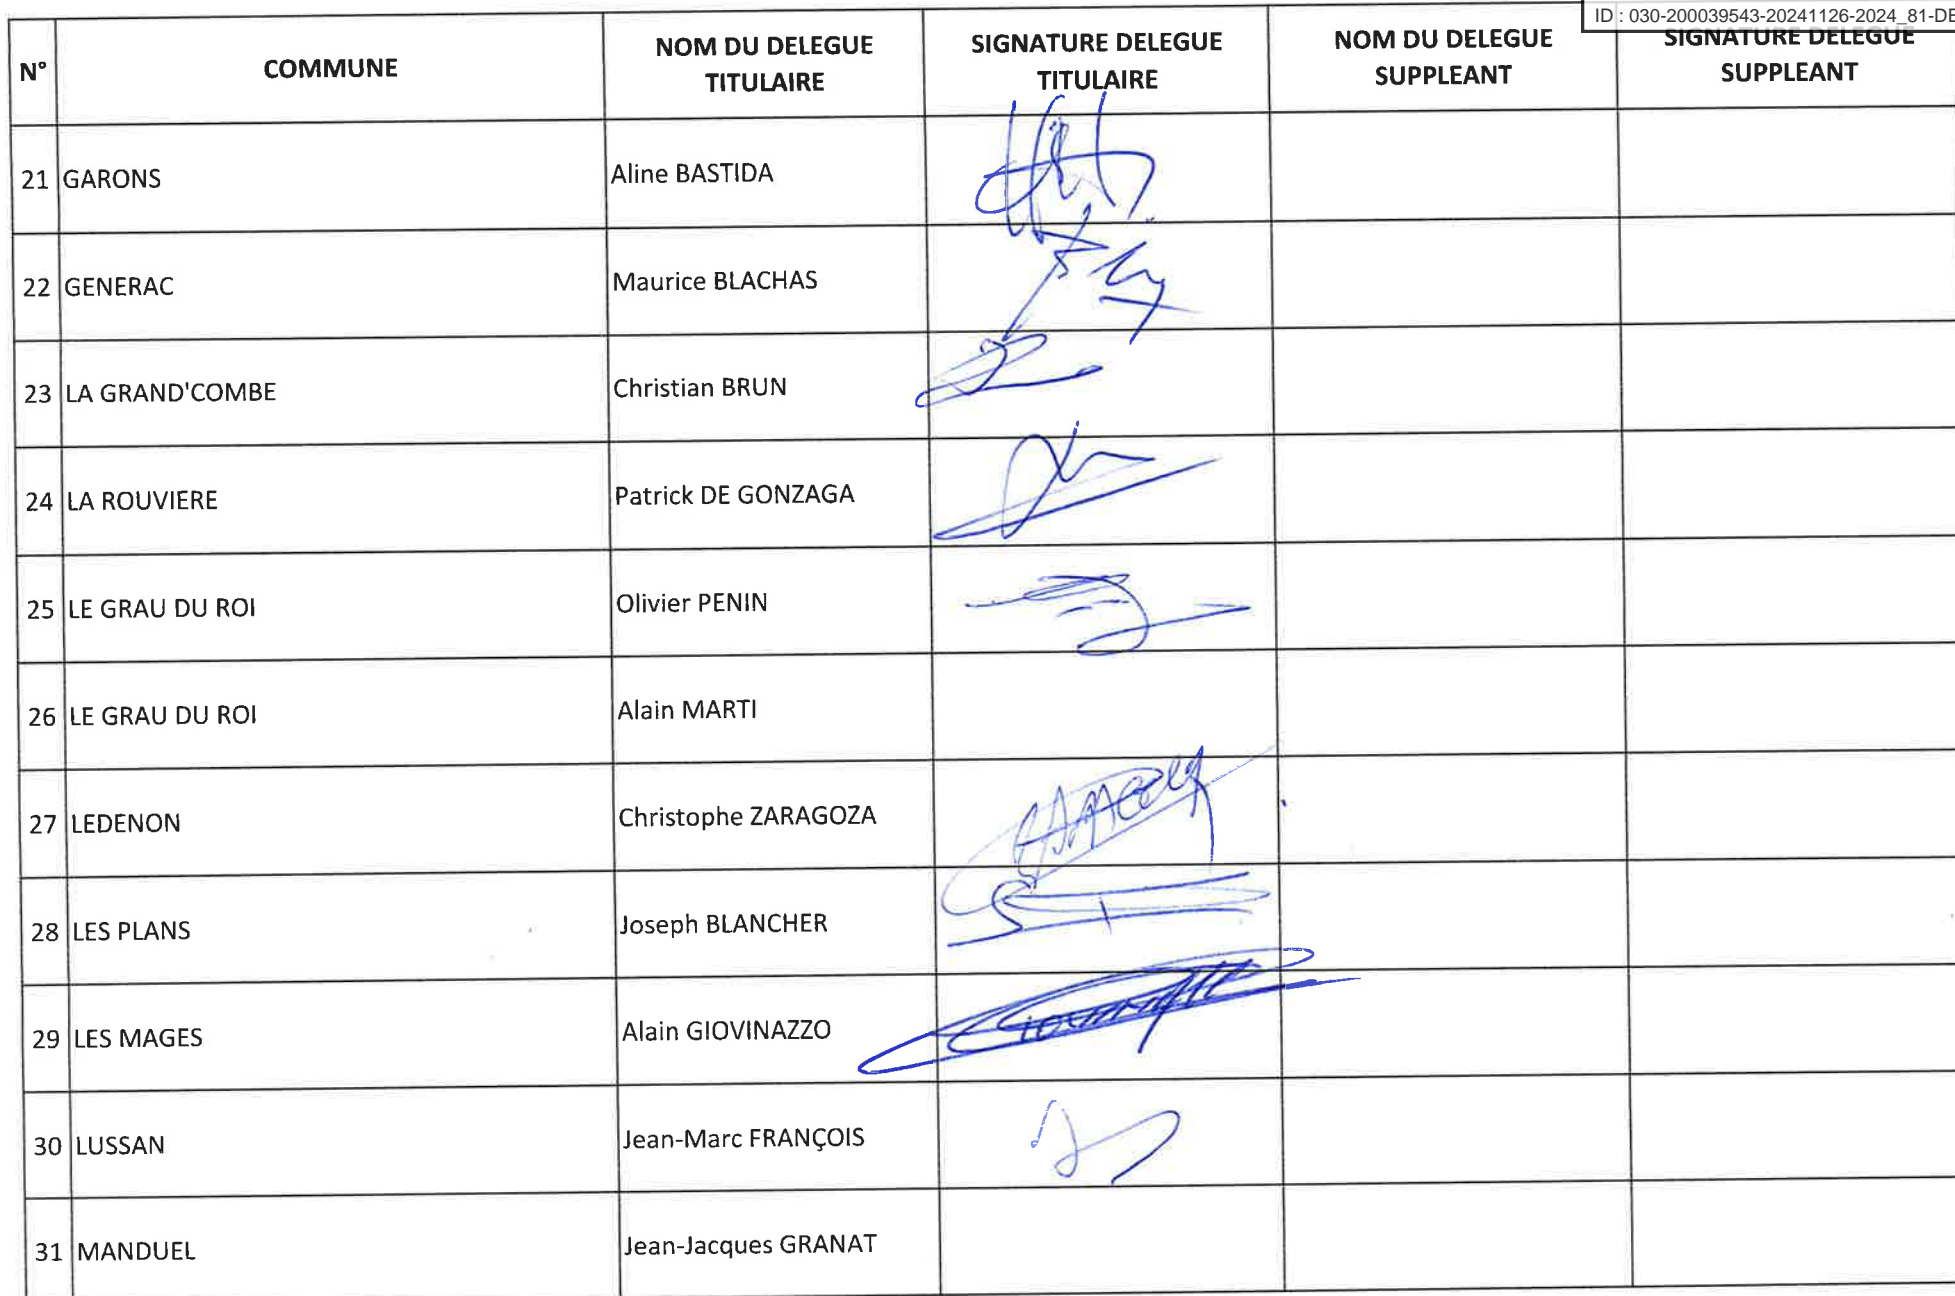 ID : 030-200039543-20241126-2024_81-DE
N° COMMUNE NOM DU DELEGUE TITULAIRE SIGNATURE DELEGUE TITULAIRE NOM DU DELEGUE SUPPLEANT SIGNATURE DELEGUE SUPPLEANT
21 GARONS Aline BASTIDA
22 GENERAC Maurice BLACHAS
23 LA GRAND'COMBE Christian BRUN
24 LA ROUVIERE Patrick DE GONZAGA
25 LE GRAU DU ROI Olivier PENIN
26 LE GRAU DU ROI Alain MARTI
27 LEDENON Christophe ZARAGOZA
28 LES PLANS Joseph BLANCHER
29 LES MAGES Alain GIOVINAZZO
30 LUSSAN Jean-Marc FRANÇOIS
31 MANDUEL Jean-Jacques GRANAT